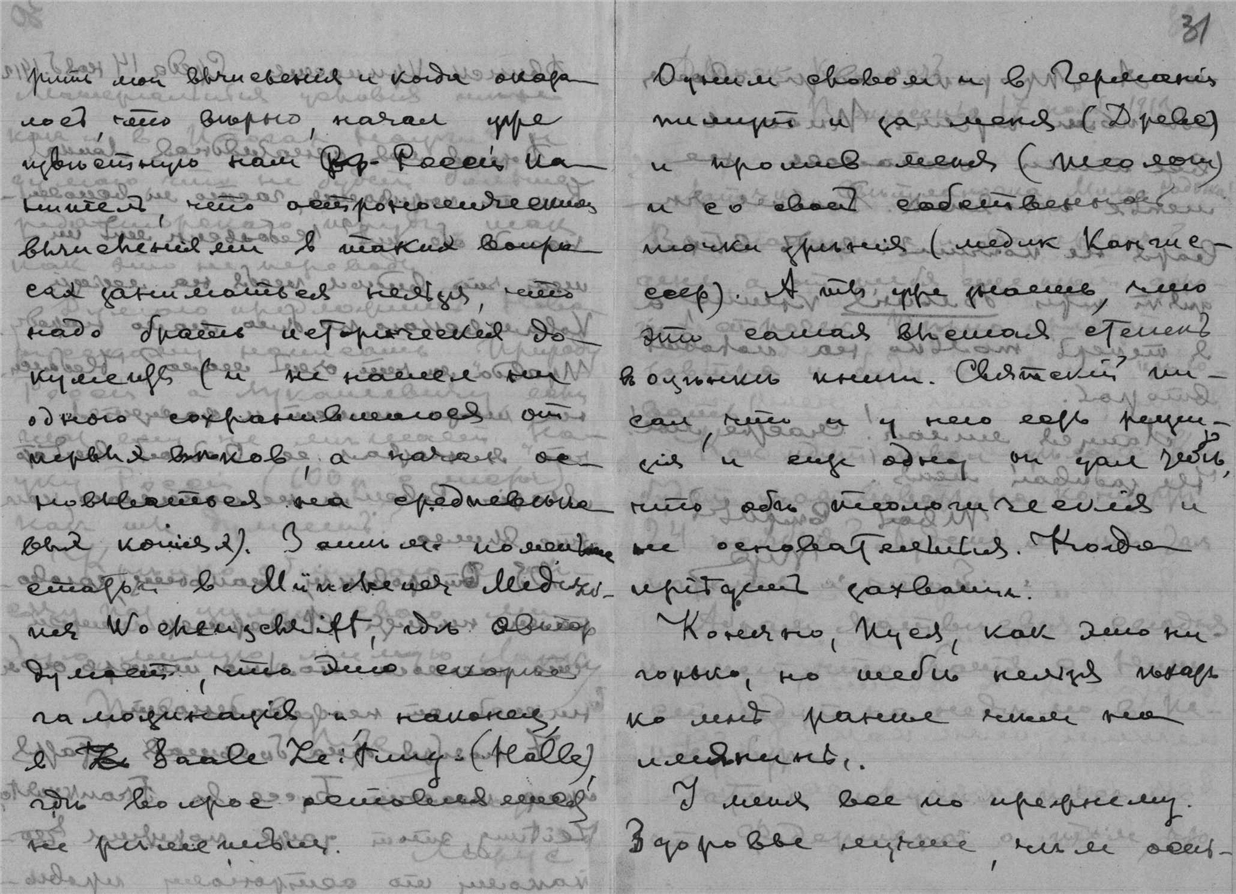 31
рилъ мои вычисленія и когда оказа-
лось, что вѣрно, началъ уже
извѣстную намъ Россей ка-
нитель, что астрономическими
вычисленіями в такихъ вопро-
сахъ заниматься нельзя, что
надо брать историческія до-
кументы (и не нашелъ ни
одного сохранившагося отъ
первыхъ вѣковъ, а началъ ос-
новываться на средневѣко-
выя копіях). Затѣмъ
статья в Münchener Medizi-
ner Wochenschrift, гдѣ автор
думает, что это скорѣе
галюцинація и наконец
в Saale Zeitung (Halle),
гдѣ вопрос оставляется
не рѣшенным.
Одним словом и в Германіи
пишут и за меня (Древс)
и против меня (теологи)
и со своей собственной
точки зрѣнія (медик
). А ты уже знаешь, что
это самая высшая степень
в оцѣнкѣ книги. Святскій пи-
сал, что и у него есть рецен-
зія и еще одну он дал тебѣ,
что обѣ теологическія и
не основательныя. Когда
прійдешь захвати.
Конечно, Нуся, как это ни
горько, но тебѣ нельзя ѣхать
ко мнѣ раньше чѣм на
имянинъ.
У меня все по прежнему.
Здоровье лучше, чѣм осен-